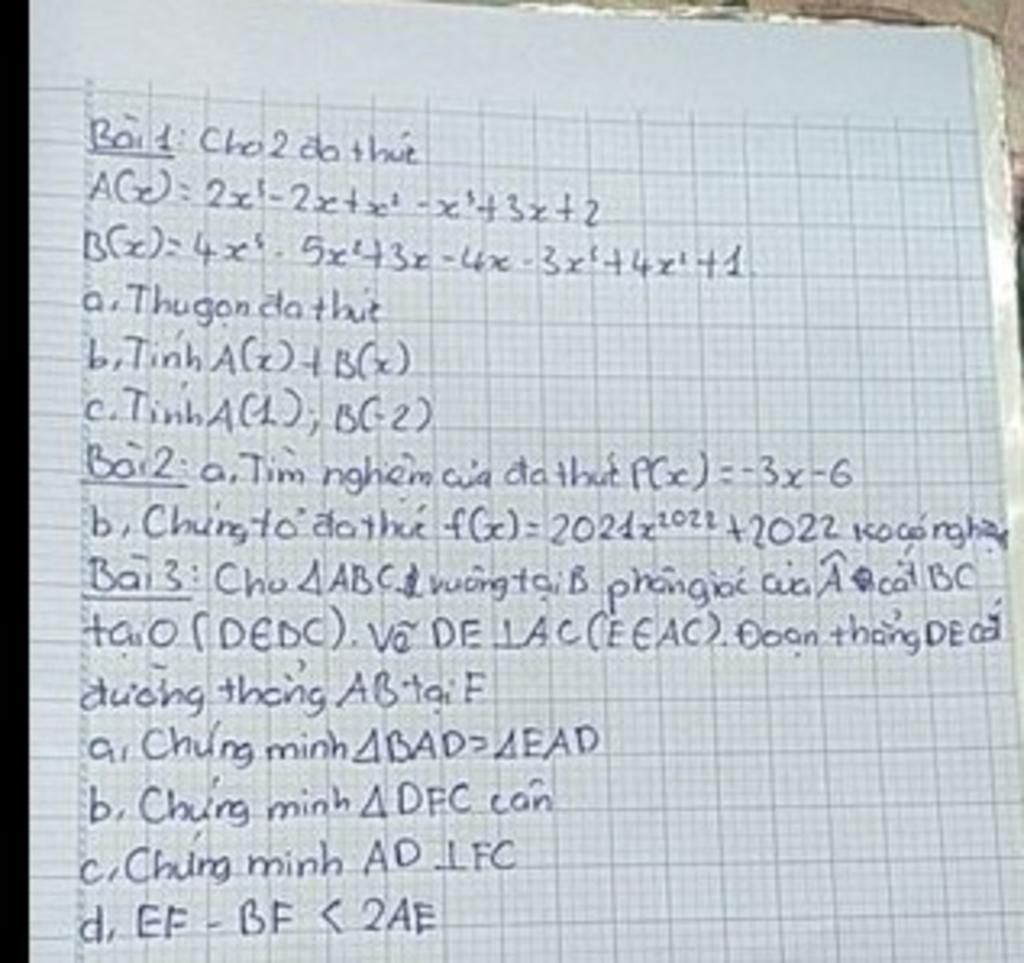 Bài 1: Cho 2 đa thức
A(x) = 2x³ - 2x + x² - x³ + 3x + 2
B(x) = 4x³ - 5x² + 3x - 4x - 3x³ + 4x² + 1
a. Thu gọn đa thức
b, Tính A(x) + B(x)
c. Tính A(1); B(-2)
Bài 2: a, Tìm nghiệm của đa thức P(x) = -3x - 6
b, Chứng tỏ đa thức f(x) = 2021x²⁰²² + 2022 ko có nghiệm
Bài 3: Cho ΔABC vuông tại B phân giác của Â cắt BC
tại D (D∈DC). Vẽ DE ⊥ AC (E∈AC). Đoạn thẳng DE cắt
đường thẳng AB tại F
a, Chứng minh ΔBAD = ΔEAD
b, Chứng minh ΔDFC cân
c, Chứng minh AD ⊥ FC
d, EF - BF < 2AE